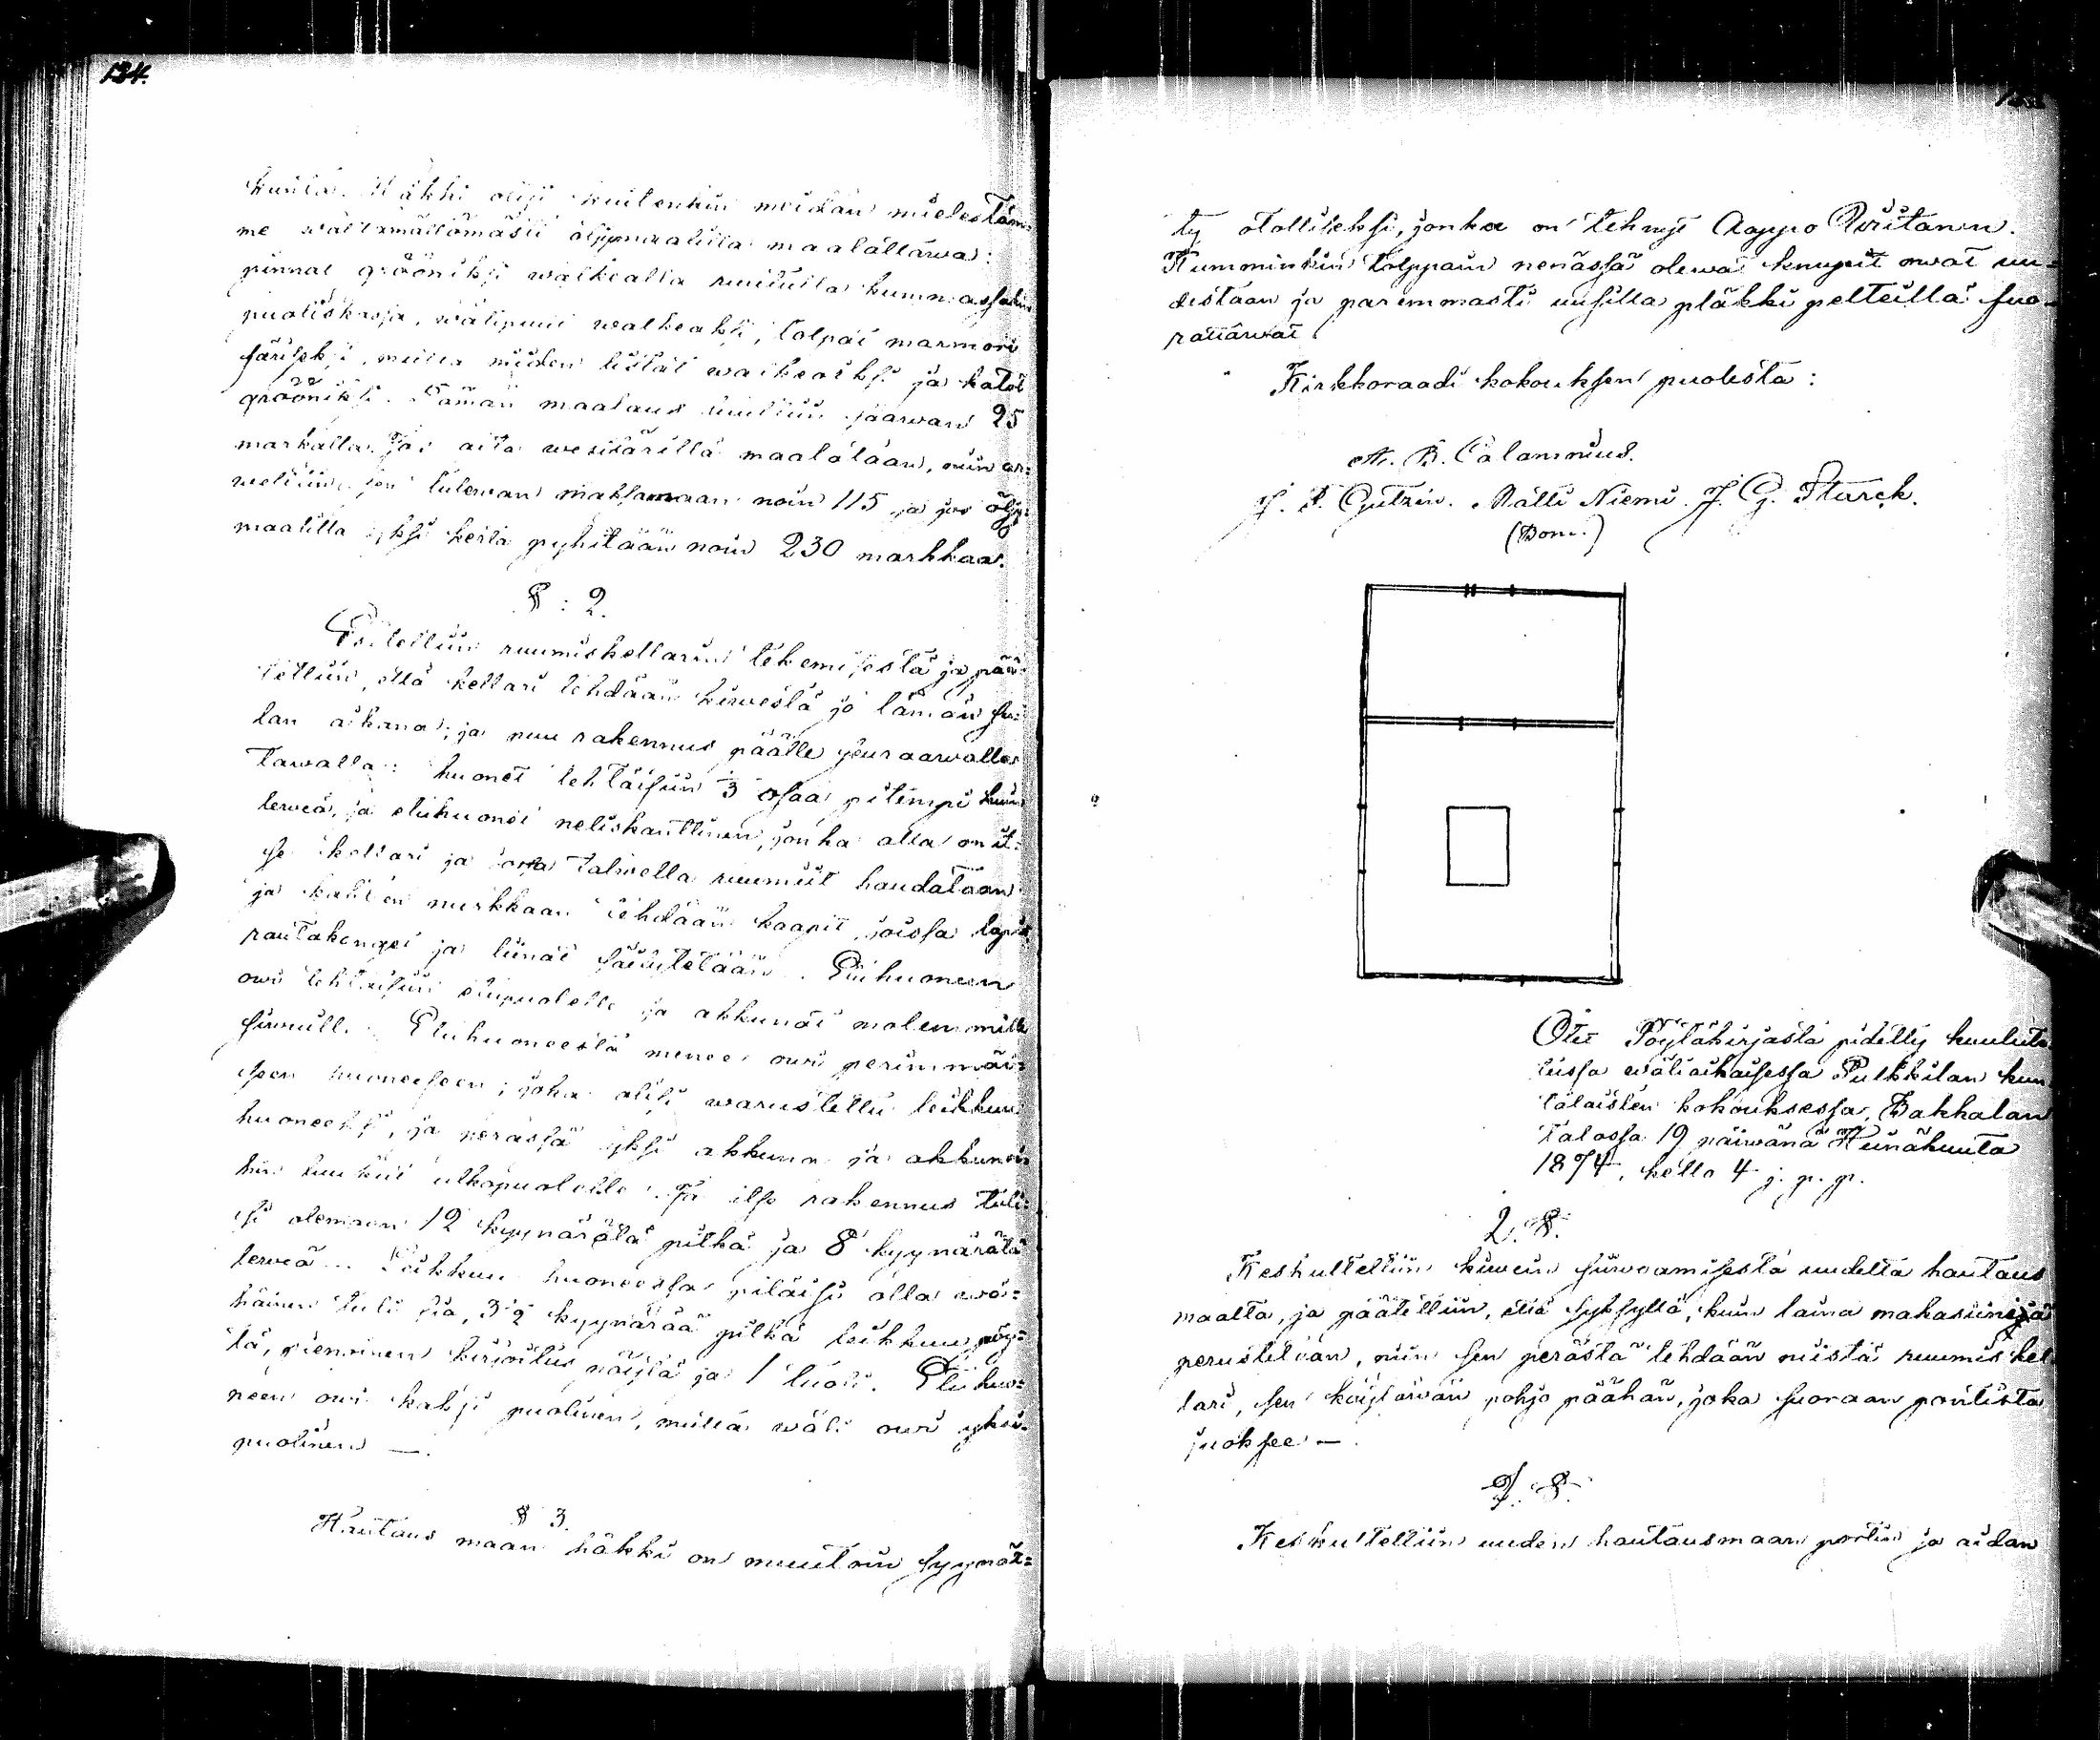 134.
kuulla. Häkki olisi kuitenkin meidän mielestäm=
me wälttämättömästi öljymaalilla maalattawa:
pinnat grööniksi walkealla ruutulla kummassakin
puoliskossa, wälipuut walkeaksi, tolpat marmori
färiseksi, mutta niiden listat walkeaksi ja katot
gröönikse. Tämän maalaus luultiin saawan 25
markalla. Jos aita wesifärillä maalataan, niin ar=
weltiin sen tulewan maksamaan noin 115 ja jos öljy
maalilla yksi kerta pyhitään noin 230 markkaa.
§: 2.
Esiteltiin ruumiskellarin tekemisestä ja pää=
tettiin, että kellari tehdään kiwestä jo tämän su=
lan aikana; ja puu rakennus päälle seuraawalla
tawalla: huonet tehtäisiin 3 osaa pitempi kuin
lewiä, ja etuhuonet neliskanttinen, jonka alla on it=
se kellari ja jossa talwella ruumiit haudataan
ja kahteen nurkkaan tehdään kaapit, joissa lapiot
rautakanget ja liinat säilytetään. Etuhuoneen
owi tehtäisiin etupuolelle ja akkunat molemmille
siwuille. Etuhuoneesta menee owi perimmäi=
seen huoneeseen; joka olisi warustettu leikkuu
huoneeksi, ja perässä yksi akkuna ja akkunoi=
hin luukut ulkopuolelle. Ja itse rakennus tuli=
si olemaan 12 kyynärätä pitkä ja 8 kyynärätä
lewiä. Leikkuu huoneessa pitäisi olla wä=
häinen tuli sia, 3½ kyynärää pitkä leikkuu pöy=
tä, pienoinen kirjoitus pöytä ja 1 tuoli. Etuhuo=
neen owi kaksi puolinen, mutta wäli owi yksi=
puolinen —.
§ 3.
Hautaus maan häkki on muutoin syynät=
ty otolliseksi, jonka on tehnyt Aappo
Kumminkin tolppain nenässä olewat knupit owat uu=
destaan ja paremmasti uusilla pläkki pelteillä suo=
rattawat
Kirkkoraadi kokouksen puolesta:
A. B. Calamnius.
Matti Niemi. J. G. Sturck.
(Dom.)
Ote Pöytäkirjasta pidetty kuulute
tussa wäliaikaisessa Pulkkilan kun
talaisten kokouksessa, Bakkalan
talossa 19 päiwänä Heinäkuuta
1874, kello 4 j. p. p.
2. §.
Keskusteltiin kiwein siiwoamisesta uudelta hautaus
maalta, ja päätettiin, että syksyllä, kuin laina makasiinija
perustetaan, niin sen perästä tehdään niistä ruumis kel
lari, sen käytäwän pohjo päähän, joka suoraan portista
juoksee —
§.
Keskusteltiin uuden hautausmaan portin ja aidan